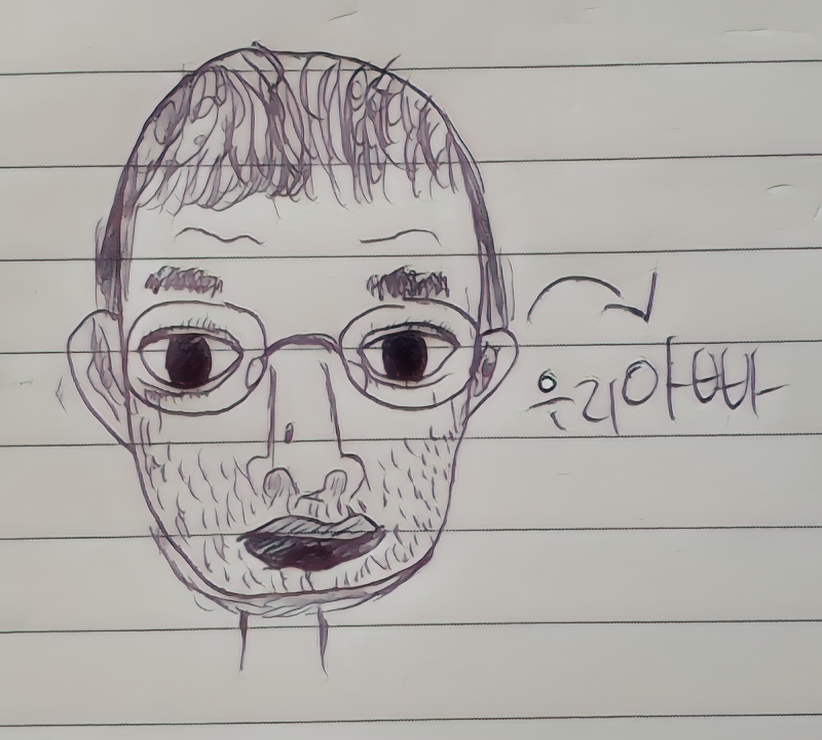 우리아빠